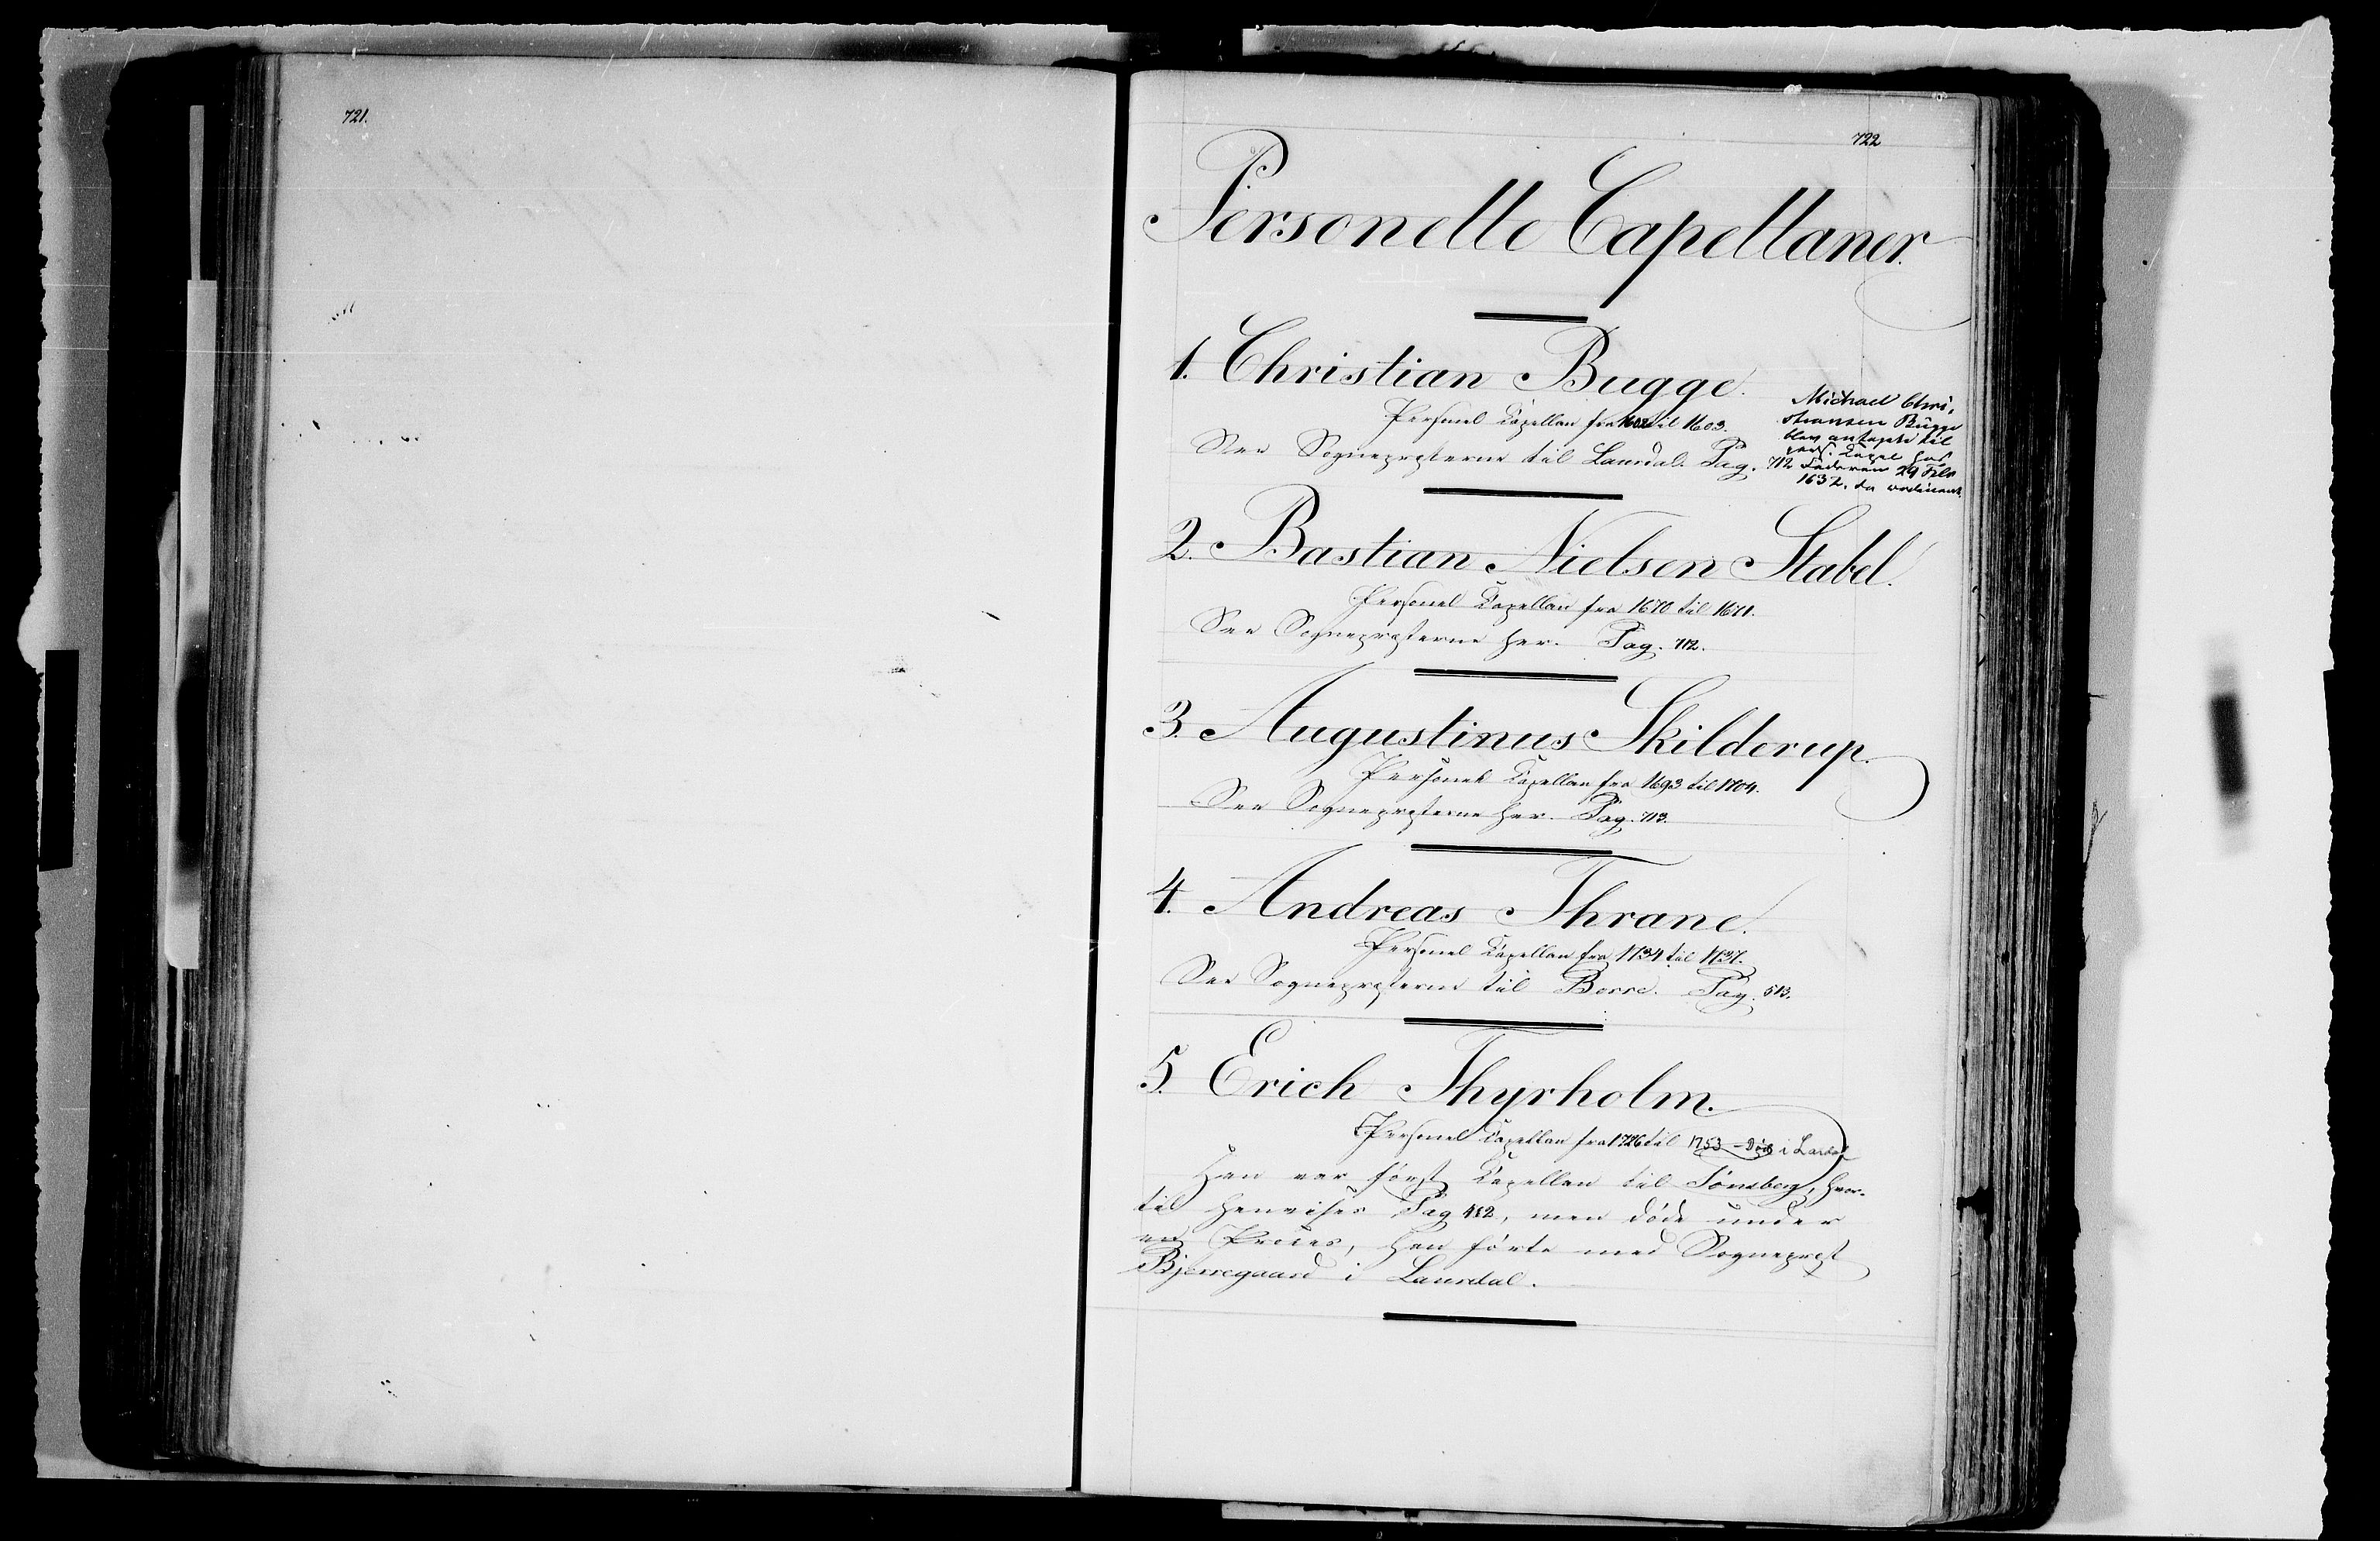 721.
722
Personelle Capellaner.
1. Christian Bugge.
Personel Capellan fra 1602 til 1603.
See Sognepræsterne til Laurdal. Pag. 712
Michael Chri-
stiansen Bugge
blev antaget til
pers. Capel hos
Faderen 29 Febr
1632, da ordineret.
2. Bastian Nielsen Stabel.
Personel Capellan fra 1670 til 1671.
See Sognepræsterne her. Pag. 712.
3. Augustinus Skilderup.
Personel Capellan fra 1693 til 1704.
See Sognepræsterne her. Pag. 713.
4. Andreas Thrane.
Personel Capellan fra 1734 til 1737.
See Sognepræsterne til Borre. Pag. 513.
5. Erich Thyrholm.
Personel Capellan fra 1726 til 1753 - Død i Lardal
Han var først Capellan til Tønsberg, hvor-
til henvises Pag 482, men døde under
en Proces, han førte med Sognepræst
Bjerregaard i Laurdal.